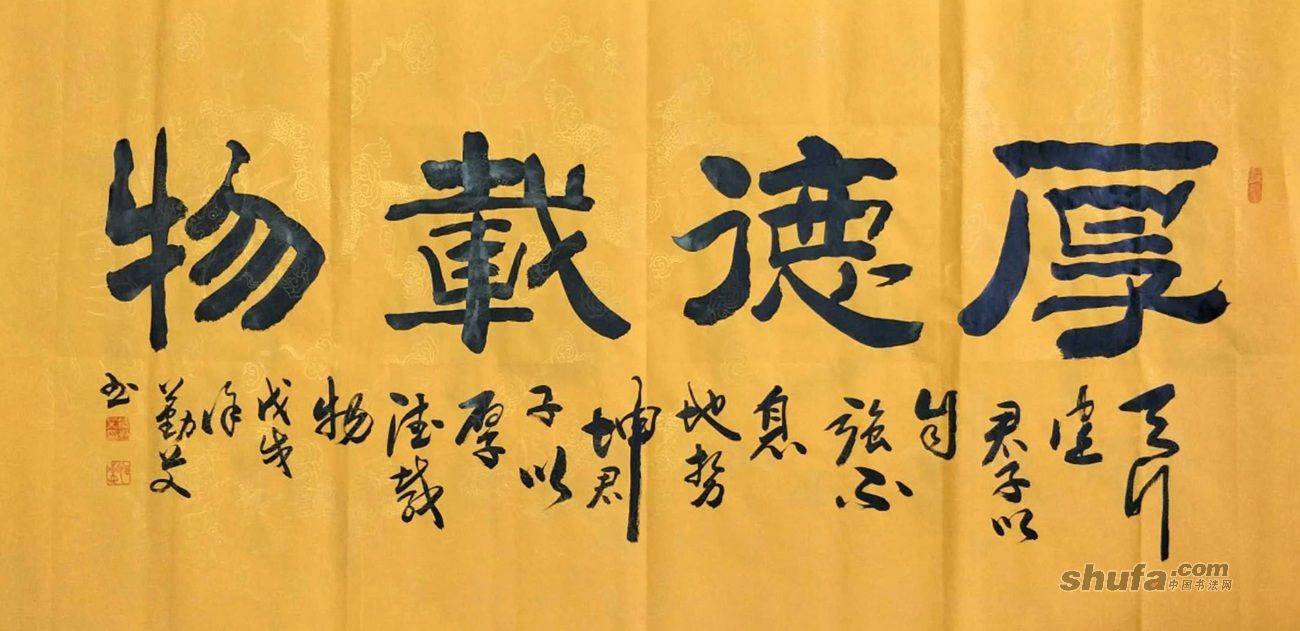 厚德載物
天行
健
君子以
自
强不
息
地势
坤君
子以
厚
德载
物
戊戌
徐
勤
书
shufa.com
中国书法网